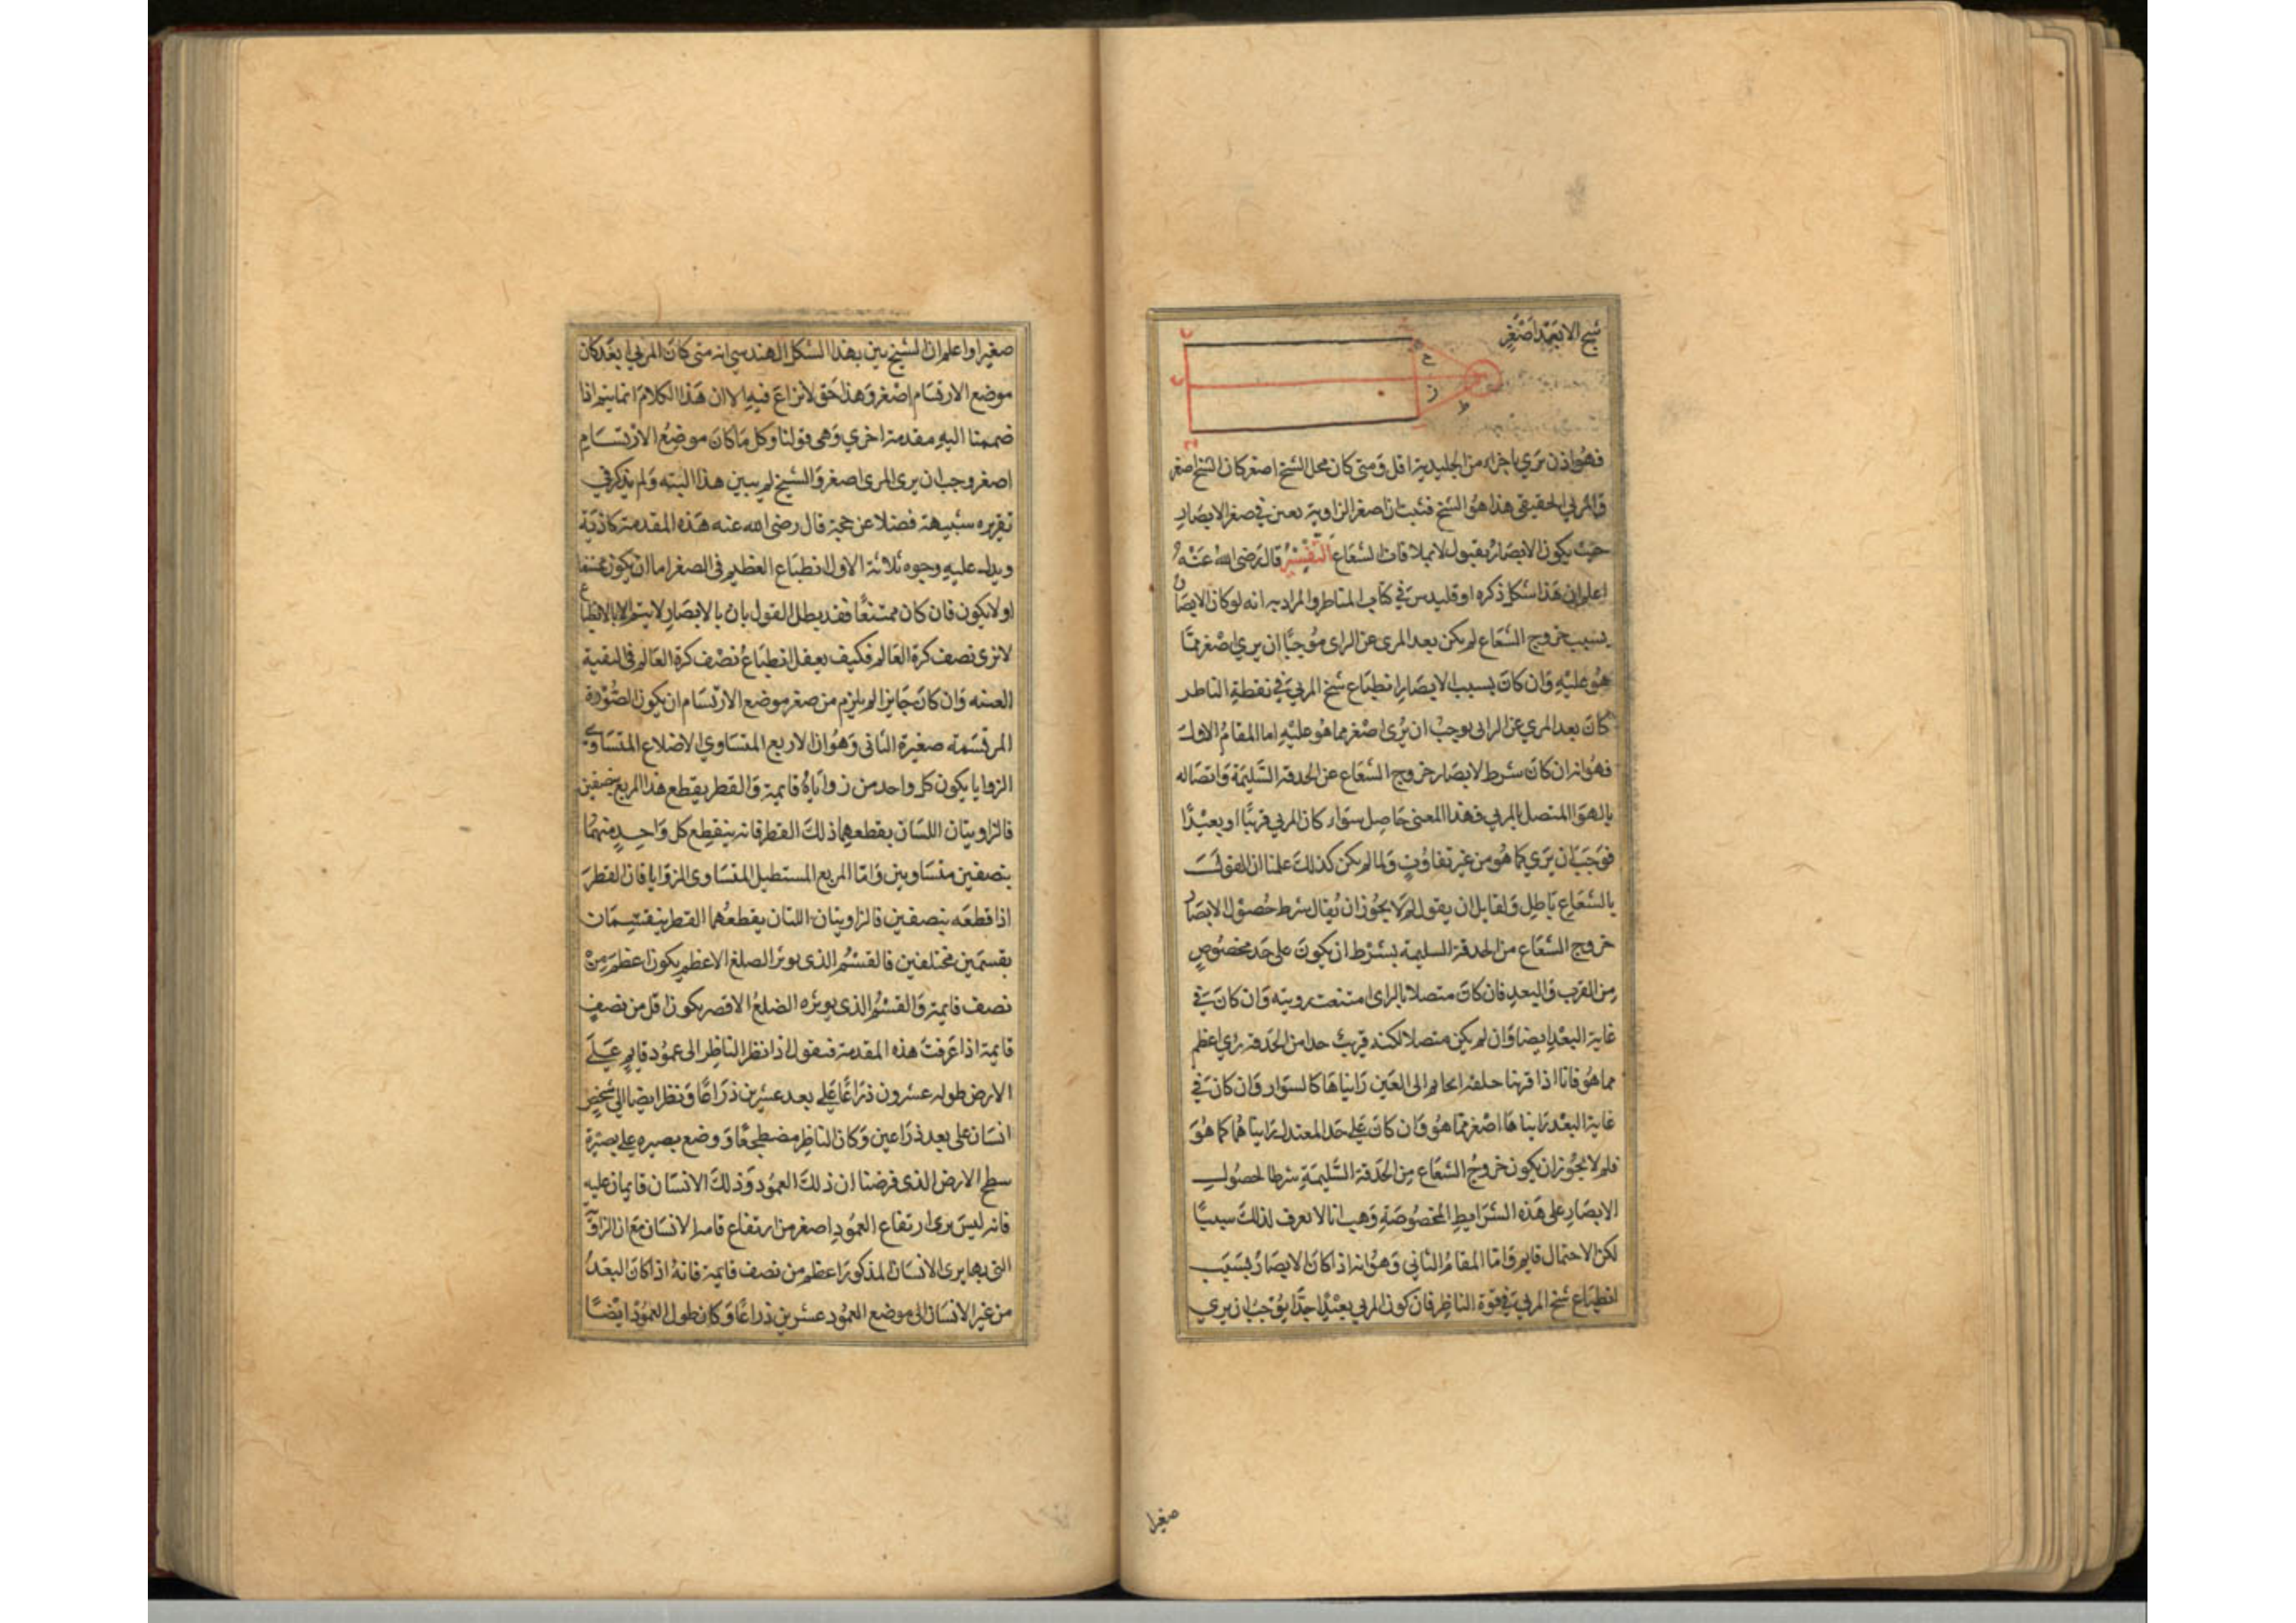 شبح الابعد اصغر
فهو اذن يرى باجزاء من الجليدية اقل ومتى كان محل الشبح اصغر كان الشبح اصغر
والمرئي الحقيقي هذا هو الشبح فثبت ان اصغر الزاوية تعين في صغر الابصار
حيث يكون الابصار بقبول لا بملاقات الشعاع التفسير قال رضى الله عنه
اعلم ان هذا شكل ذكره اوقليدس في كتاب المناظر والمراد به انه لو كان الابصار
بسبب خروج الشعاع لم يكن بعد المرى عن الراى موجبا ان يرى اصغر مما
هو عليه وان كان بسبب الابصار انطباع شبح المرئي في نقطة الناظر
كان بعد المري عن الرائى يوجب ان يرى اصغر مما هو عليه اما المقام الاول
فهو انه ان كان شرط الابصار خروج الشعاع عن الحدقة السليمة واتصاله
بالهوا المتصل بالمرئي فهذا المعنى حاصل سواء كان المرئي قريبا او بعيدا
فوجب ان يرى كما هو من غير تفاوت ولما لم يكن كذلك علمنا ان القول
بالشعاع باطل ولقايل ان يقول لم لا يجوز ان يقال شرط حصول الابصار
خروج الشعاع من الحدقة السليمة بشرط ان يكون على حد مخصوص
من القرب والبعد فان كان متصلا بالراى امتنعت رويته وان كان في
غاية البعد ايضا وان لم يكن متصلا لكنه قريب جدا من الحدقة رؤي اعظم
مما هو فانا اذا قربنا حلقة الخاتم الى العين رايناها كالسوار وان كان في
غاية البعد رايناها اصغر مما هو وان كان على حد المعتدل رايناهما كما هو
فلم لا يجوز ان يكون خروج الشعاع من الحدقة السليمة شرطا لحصول
الابصار على هذه الشرايط المخصوصة وهب انا لا نعرف لذلك سببا
لكن الاحتمال قايم واما المقام الثاني وهو انه اذا كان الابصار بسبب
انطباع شبح المرئي في قوة الناظر فان كون المرئي بعيدا جدا يوجب ان يرى
صغيرا
صغيرا واعلم ان الشيخ بين بهذا الشكل الهندسي انه متى كان المرئي ابعد كان
موضع الارتسام اصغر وهذا حق لا نزاع فيه الا ان هذا الكلام انما يتم اذا
ضممنا اليه مقدمة اخرى وهى قولنا وكل ما كان موضع الارتسام
اصغر وجب ان يرى المرى اصغر والشيخ لم يبين هذا البته ولم يذكر في
تقريره شبهة فضلا عن حجة قال رضى الله عنه هذه المقدمة كاذبة
ويدل عليه وجوه ثلاثة الاول انطباع العظيم في الصغر اما ان يكون ممتنعا
او لا يكون فان كان ممتنعا فقد بطل القول بان بالابصار لا يتم الا بالانطباع
لانا نرى نصف كرة العالم فكيف يعقل انطباع نصف كرة العالم في
العينه وان كان جايزا لم يلزم من صغر موضع الارتسام ان يكون الصورة
المرتسمة صغيرة الثانى وهو ان الاربع المتساوي الاضلاع المتساوي
الزوايا يكون كل واحد من زواياه قايمة والقطر يقطع هذا المربع بنصفين
فالزاويتان اللتان يقطعهما ذلك القطر فانه ينقطع كل واحد منهما
بنصفين متساويين واما المربع المستطيل المتساوى الزوايا فان القطر
اذا قطعه بنصفين فالزاويتان اللتان يقطعهما القطر ينقسمان
بقسمين مختلفين فالقسم الذى يوتر الضلع الاعظم يكون اعظم من
نصف قايمة والقسم الذى يوتره الضلع الاقصر يكون اقل من نصف
قايمة اذا عرفت هذه المقدمة فنقول اذا نظر الناظر الى عمود قايم على
الارض طوله عشرون ذراعا على بعد عشرين ذراعا ونظر ايضا الى شخص
انسان على بعد ذراعين وكان الناظر مضطجعا ووضع بصيره على بصيرة
سطح الارض الذى فرضنا ان ذلك العمود وذلك الانسان قايمان عليه
فانه ليس يرى ارتفاع العمود اصغر من ارتفاع قامة الانسان مع ان الزاوية
التى بها يرى الانسان المذكور اعظم من نصف قايمة فانه اذا كان البعد
من غير الانسان الى موضع العمود عشرين ذراعا وكان طول العمود ايضا